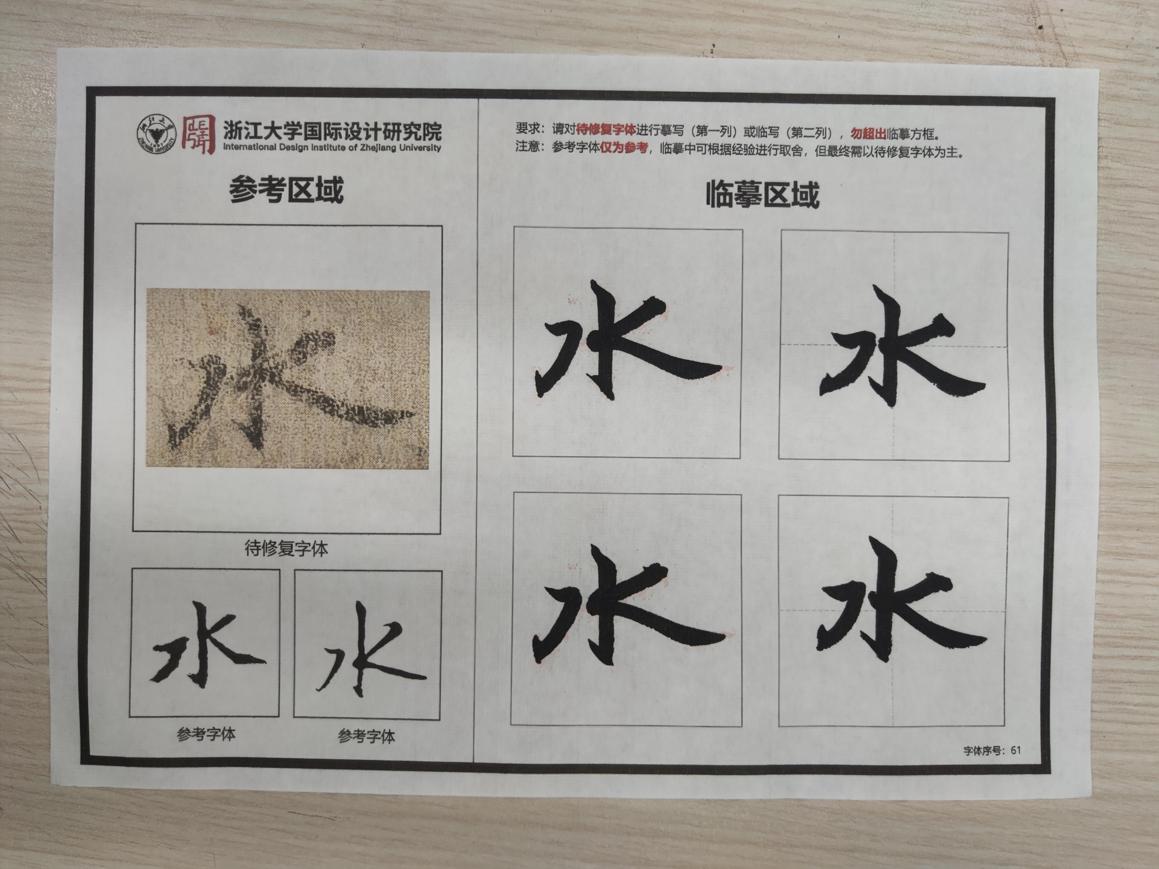 浙江大学国际设计研究院
International Design Institute of Zhejiang University
参考区域
水
待修复字体
水
参考字体
水
参考字体
要求：请对待修复字体进行摹写（第一列）或临写（第二列），勿超出临摹方框。
注意：参考字体仅为参考，临摹中可根据经验进行取舍，但最终需以待修复字体为主。
临摹区域
水 水
水 水
字体序号：61